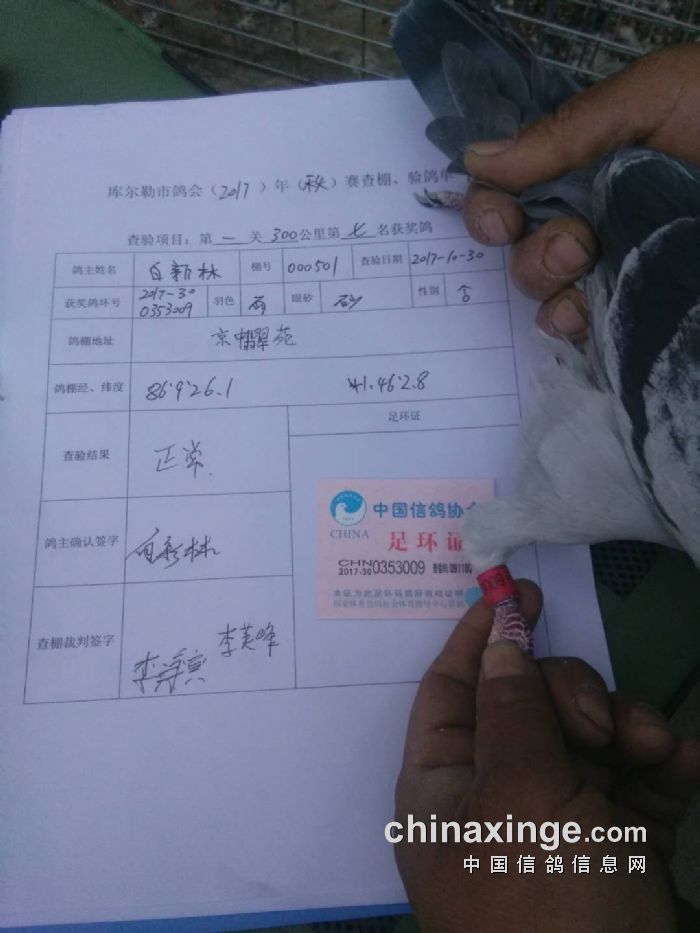 库尔勒市鸽会（2017）年（秋）赛查棚、验鸽单
查验项目：第一关300公里第七名获奖鸽
鸽主姓名 白新林 棚号 000501 查验日期 2017-10-30
获奖鸽环号 2017-30 0353009 羽色 雨 眼砂 砂 性别
鸽棚地址 京 翠苑
鸽棚经、纬度 86°9'26.1 41.46'2.8
足环证
查验结果 正常.
中国信鸽协会
CHINA
足环证
CHN
2017-30 0353009
本证为此足环码鸽所有权证明
鸽主确认签字 白新林
查棚裁判签字 李英峰
chinaxinge.com
中国信鸽信息网